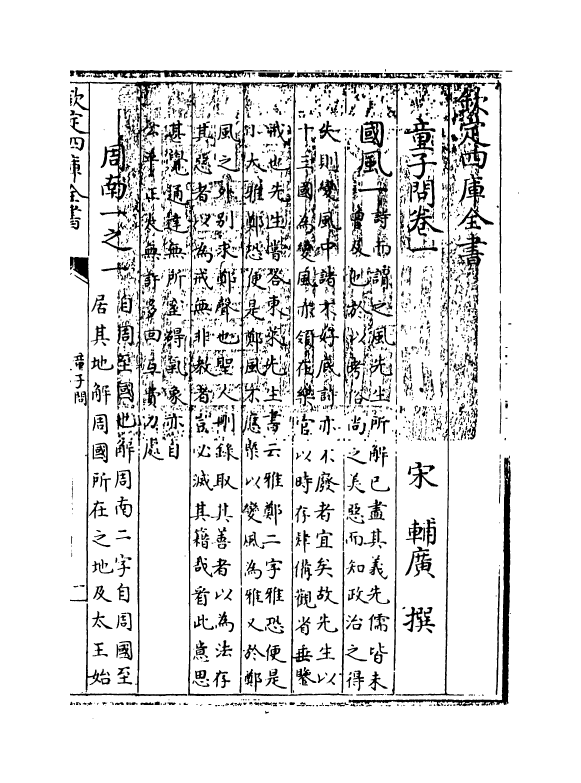 欽定四庫全書
童子問卷一
宋 輔廣 撰
國風一
詩而謂之風先生所解已盡其義先儒皆未
嘗及也於以考俗尚之美惡而知政治之得
失則變風中諸不好底詩亦不廢者宜矣故先生以
十三國為變風亦領在樂官以時存肄備觀省垂鑒
戒也先生嘗答東萊先生書云雅鄭二字雅恐便是
小大雅鄭恐便是鄭風不應槩以變風為雅又於鄭
風之外別求鄭聲也聖人刪錄取其善者以為法存
其惡者以為戒無非教者豈必滅其籍哉看此意思
甚覺通達無所窒礙氣象亦自
公平正大無許多回互費力處
周南一之一
自周至國也解周南二字自周國至
居其地解周國所在之地及太王始
欽定四庫全書
童子問
一